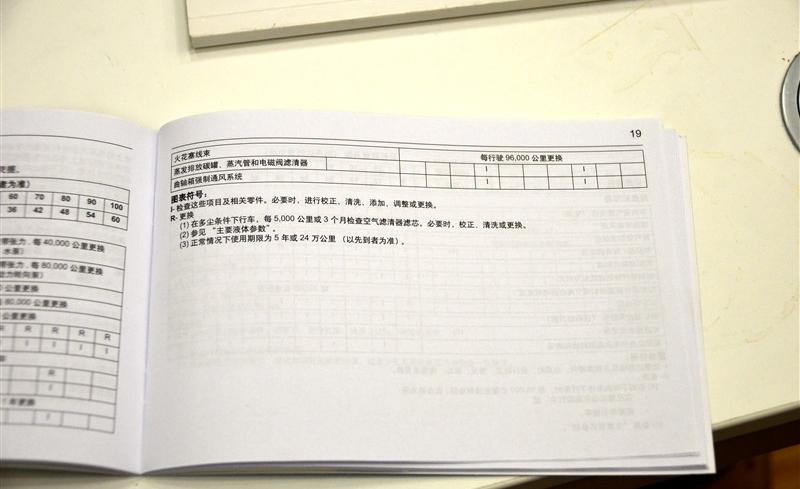 19
火花塞线束 每行驶 96,000 公里更换
蒸发排放碳罐、蒸汽管和电磁阀滤清器 I I
曲轴箱强制通风系统 I I
图表符号：
I- 检查这些项目及相关零件。必要时，进行校正、清洗、添加、调整或更换。
R- 更换
(1) 在多尘条件下行车，每 5,000 公里或 3 个月检查空气滤清器滤芯。必要时，校正、清洗或更换。
(2) 参见 “主要液体参数”。
(3) 正常情况下使用期限为 5 年或 24 万公里（以先到者为准）。
者为准）
60 70 80 90 100
36 42 48 54 60
带张力，每 40,000 公里更换
水泵）
带张力，每 80,000 公里更换
动力转向泵）
公里更换
80,000 公里更换
公里更换
R R R R
I I I I
R R
I
年更换
I